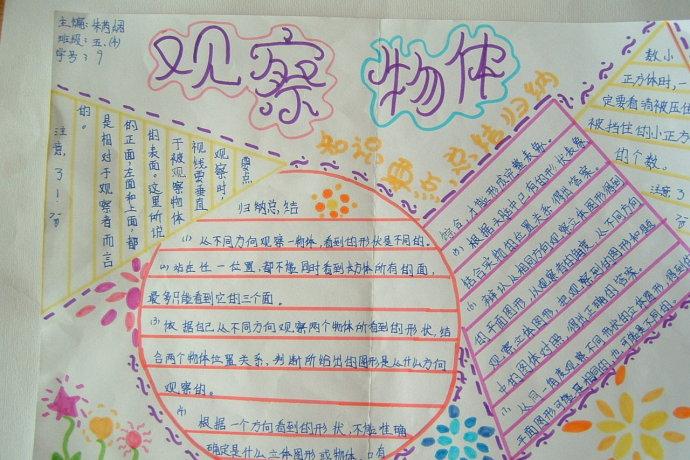 主编:
班级:五.(4)
学号:9
观察物体
知识要点,总结归纳
数小
正方体时,一
定要看清被压住
被挡住的小正方
的个数。
注意了
要点
观察时,
视线要垂直
于被观察物体
的表面。这里所说
的正面,左面和上面,都
是相对于观察者而言
的。
注意了!
归纳总结
(1) 从不同方向观察一物体,看到的形状是不同的。
(2) 站在任一位置,都不能同时看到长方体所有的面,
最多只能看到它的三个面。
(3) 根据自己从不同方向观察两个物体所看到的形状,结
合两个物体位置关系,判断所给出的图形是从什么方向
观察的。
(4)
根据一个方向看到的形状,不能准确
确定是什么立体图形或物体,只有
综合,才能形成完整表象。
(5) 根据头脑中已有的形状表象
结合实物的位置关系,得出答案
(6) 辨认从相同方向观察立体图形得到
的平面图形,从观察者的角度,从不同方向
观察立体图形,把观察到的图形和题
中的图体对照,得出正确的答案。
(7) 从同一角度观察不同形状的立体图形,得到的
平面图形可能是相同的,也可能是不同的。